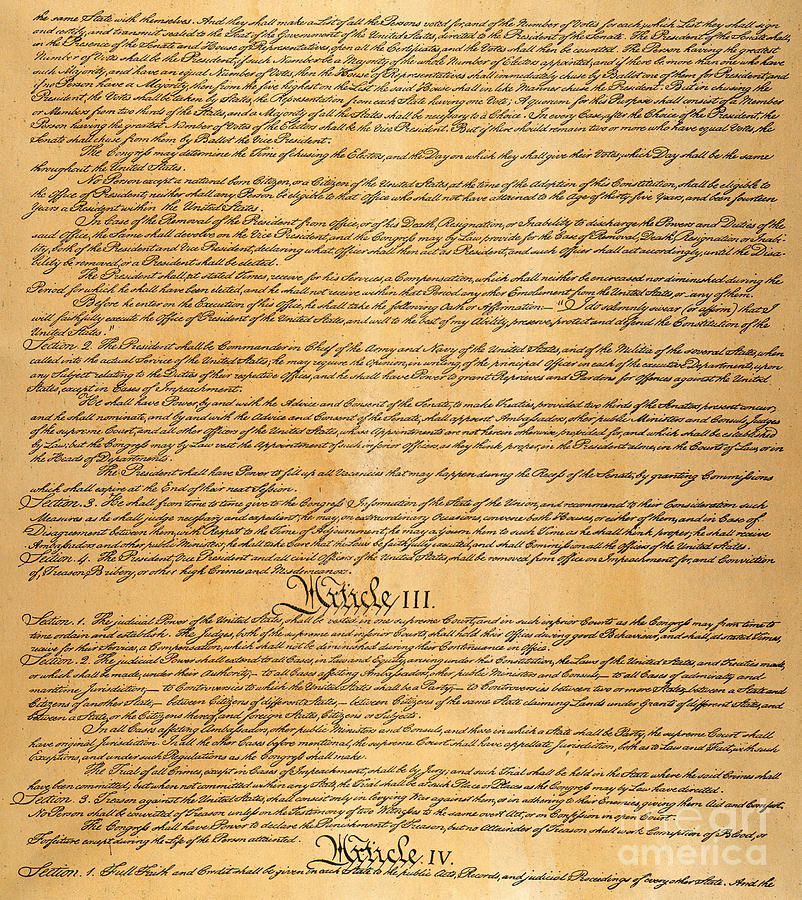 the same State with themselves. And they shall make a List of all the Persons voted for, and of the Number of Votes for each; which List they shall sign
and certify, and transmit sealed to the Seat of the Government of the United States, directed to the President of the Senate. The President of the Senate shall,
in the Presence of the Senate and House of Representatives, open all the Certificates, and the Votes shall then be counted. The Person having the greatest
Number of Votes shall be the President, if such Number be a Majority of the whole Number of Electors appointed; and if there be more than one who have
such Majority, and have an equal Number of Votes, then the House of Representatives shall immediately chuse by Ballot one of them for President; and
if no Person have a Majority, then from the five highest on the List the said House shall in like Manner chuse the President. But in chusing the
President, the Votes shall be taken by States, the Representation from each State having one Vote; A quorum for this Purpose shall consist of a Member
or Members from two thirds of the States, and a Majority of all the States shall be necessary to a Choice. In every Case, after the Choice of the President, the
Person having the greatest Number of Votes of the Electors shall be the Vice President. But if there should remain two or more who have equal Votes, the
Senate shall chuse from them by Ballot the Vice President.
The Congress may determine the Time of chusing the Electors, and the Day on which they shall give their Votes; which Day shall be the same
throughout the United States.
No Person except a natural born Citizen, or a Citizen of the United States, at the time of the Adoption of this Constitution, shall be eligible to
the Office of President; neither shall any Person be eligible to that Office who shall not have attained to the Age of thirty five Years, and been fourteen
Years a Resident within the United States.
In Case of the Removal of the President from Office, or of his Death, Resignation, or Inability to discharge the Powers and Duties of the
said Office, the Same shall devolve on the Vice President, and the Congress may by Law provide for the Case of Removal, Death, Resignation or Inabi-
lity, both of the President and Vice President, declaring what Officer shall then act as President, and such Officer shall act accordingly, until the Disa-
bility be removed, or a President shall be elected.
The President shall, at stated Times, receive for his Services, a Compensation, which shall neither be encreased nor diminished during the
Period for which he shall have been elected, and he shall not receive within that Period any other Emolument from the United States, or any of them.
Before he enter on the Execution of his Office, he shall take the following Oath or Affirmation:— "I do solemnly swear (or affirm) that I
will faithfully execute the Office of President of the United States, and will to the best of my Ability, preserve, protect and defend the Constitution of the
United States."
Section 2. The President shall be Commander in Chief of the Army and Navy of the United States, and of the Militia of the several States, when
called into the actual Service of the United States; he may require the Opinion, in writing, of the principal Officer in each of the executive Departments, upon
any Subject relating to the Duties of their respective Offices, and he shall have Power to grant Reprieves and Pardons for Offences against the United
States, except in Cases of Impeachment.
He shall have Power, by and with the Advice and Consent of the Senate, to make Treaties, provided two thirds of the Senators present concur;
and he shall nominate, and by and with the Advice and Consent of the Senate, shall appoint Ambassadors, other public Ministers and Consuls, Judges
of the supreme Court, and all other Officers of the United States, whose Appointments are not herein otherwise provided for, and which shall be established
by Law: but the Congress may by Law vest the Appointment of such inferior Officers, as they think proper, in the President alone, in the Courts of Law, or in
the Heads of Departments.
The President shall have Power to fill up all Vacancies that may happen during the Recess of the Senate, by granting Commissions
which shall expire at the End of their next Session.
Section. 3. He shall from time to time give to the Congress Information of the State of the Union, and recommend to their Consideration such
Measures as he shall judge necessary and expedient; he may, on extraordinary Occasions, convene both Houses, or either of them, and in Case of
Disagreement between them, with Respect to the Time of Adjournment, he may adjourn them to such Time as he shall think proper; he shall receive
Ambassadors and other public Ministers; he shall take Care that the Laws be faithfully executed, and shall Commission all the Officers of the United States.
Section. 4. The President, Vice President and all civil Officers of the United States, shall be removed from Office on Impeachment for, and Conviction
of, Treason, Bribery, or other high Crimes and Misdemeanors.
Article III.
Section. 1. The judicial Power of the United States, shall be vested in one supreme Court, and in such inferior Courts as the Congress may from time to
time ordain and establish. The Judges, both of the supreme and inferior Courts, shall hold their Offices during good Behaviour, and shall, at stated Times,
receive for their Services, a Compensation, which shall not be diminished during their Continuance in Office.
Section. 2. The judicial Power shall extend to all Cases, in Law and Equity, arising under this Constitution, the Laws of the United States, and Treaties made,
or which shall be made, under their Authority;— to all Cases affecting Ambassadors, other public Ministers and Consuls;— to all Cases of admiralty and
maritime Jurisdiction;— to Controversies to which the United States shall be a Party;— to Controversies between two or more States;— between a State and
Citizens of another State;— between Citizens of different States,— between Citizens of the same State claiming Lands under Grants of different States, and
between a State, or the Citizens thereof, and foreign States, Citizens or Subjects.
In all Cases affecting Ambassadors, other public Ministers and Consuls, and those in which a State shall be Party, the supreme Court shall
have original Jurisdiction. In all the other Cases before mentioned, the supreme Court shall have appellate Jurisdiction, both as to Law and Fact, with such
Exceptions, and under such Regulations as the Congress shall make.
The Trial of all Crimes, except in Cases of Impeachment, shall be by Jury; and such Trial shall be held in the State where the said Crimes shall
have been committed; but when not committed within any State, the Trial shall be at such Place or Places as the Congress may by Law have directed.
Section. 3. Treason against the United States, shall consist only in levying War against them, or in adhering to their Enemies, giving them Aid and Comfort.
No Person shall be convicted of Treason unless on the Testimony of two Witnesses to the same overt Act, or on Confession in open Court.
The Congress shall have Power to declare the Punishment of Treason, but no Attainder of Treason shall work Corruption of Blood, or
Forfeiture except during the Life of the Person attainted.
Article. IV.
Section. 1. Full Faith and Credit shall be given in each State to the public Acts, Records, and judicial Proceedings of every other State. And the
fine art
america